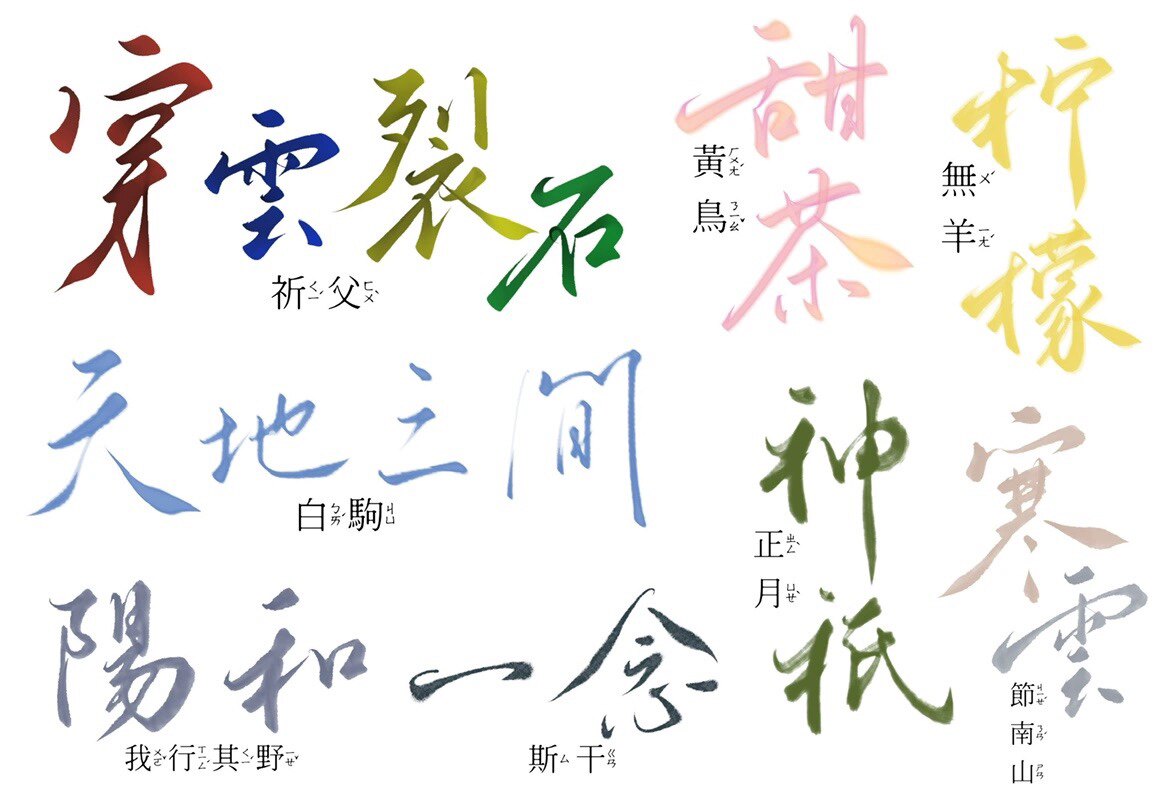 穿雲裂石
祈ㄑㄧˊ父ㄈㄨˋ
甜茶
黃ㄏㄨㄤˊ鳥ㄋㄧㄠˇ
柠檬
無ㄨˊ羊ㄧㄤˊ
天地之間
白ㄅㄞˊ駒ㄐㄩ
神祇
正ㄓㄥ月ㄩㄝˋ
寒雲
節ㄐㄧㄝˊ南ㄋㄢˊ山ㄕㄢ
陽和
我ㄨㄛˇ行ㄒㄧㄥˊ其ㄑㄧˊ野ㄧㄝˇ
一念
斯ㄙ干ㄍㄢ